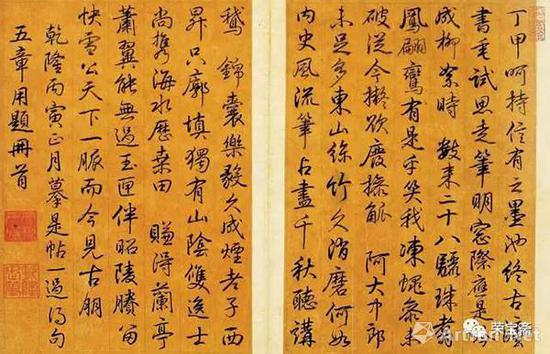 丁甲呵持信有之墨池終古
書毫試思走筆明窗際應是
成柳絮時 數來二十八驪珠翥
鳳翩鸞有是乎笑我凍蠅參未
破從今擬欲廢操觚 阿大中郎
未足多東山絲竹久消磨何如
內史風流筆占盡千秋聽講
鵝 錦囊樂毅久成煙老子西
昇只廓填獨有山陰雙逸士
尚攜海水歷桑田 賺得蘭亭
蕭翼能無過玉匣伴昭陵賸留
快雪公天下一脈而今見古朋
乾隆丙寅正月摹是帖一過得句
五章用題冊首
荣宝斋